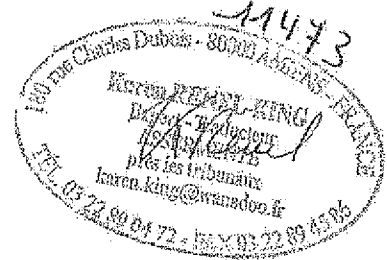 11473
160 rue Charles Dubois - 80000 AMIENS - FRANCE
Karen REMEL-KING
Expert - Traducteur
près les tribunaux
karen.king@wanadoo.fr
TÉL. 03 22 89 04 72 - FAX 03 22 89 45 86